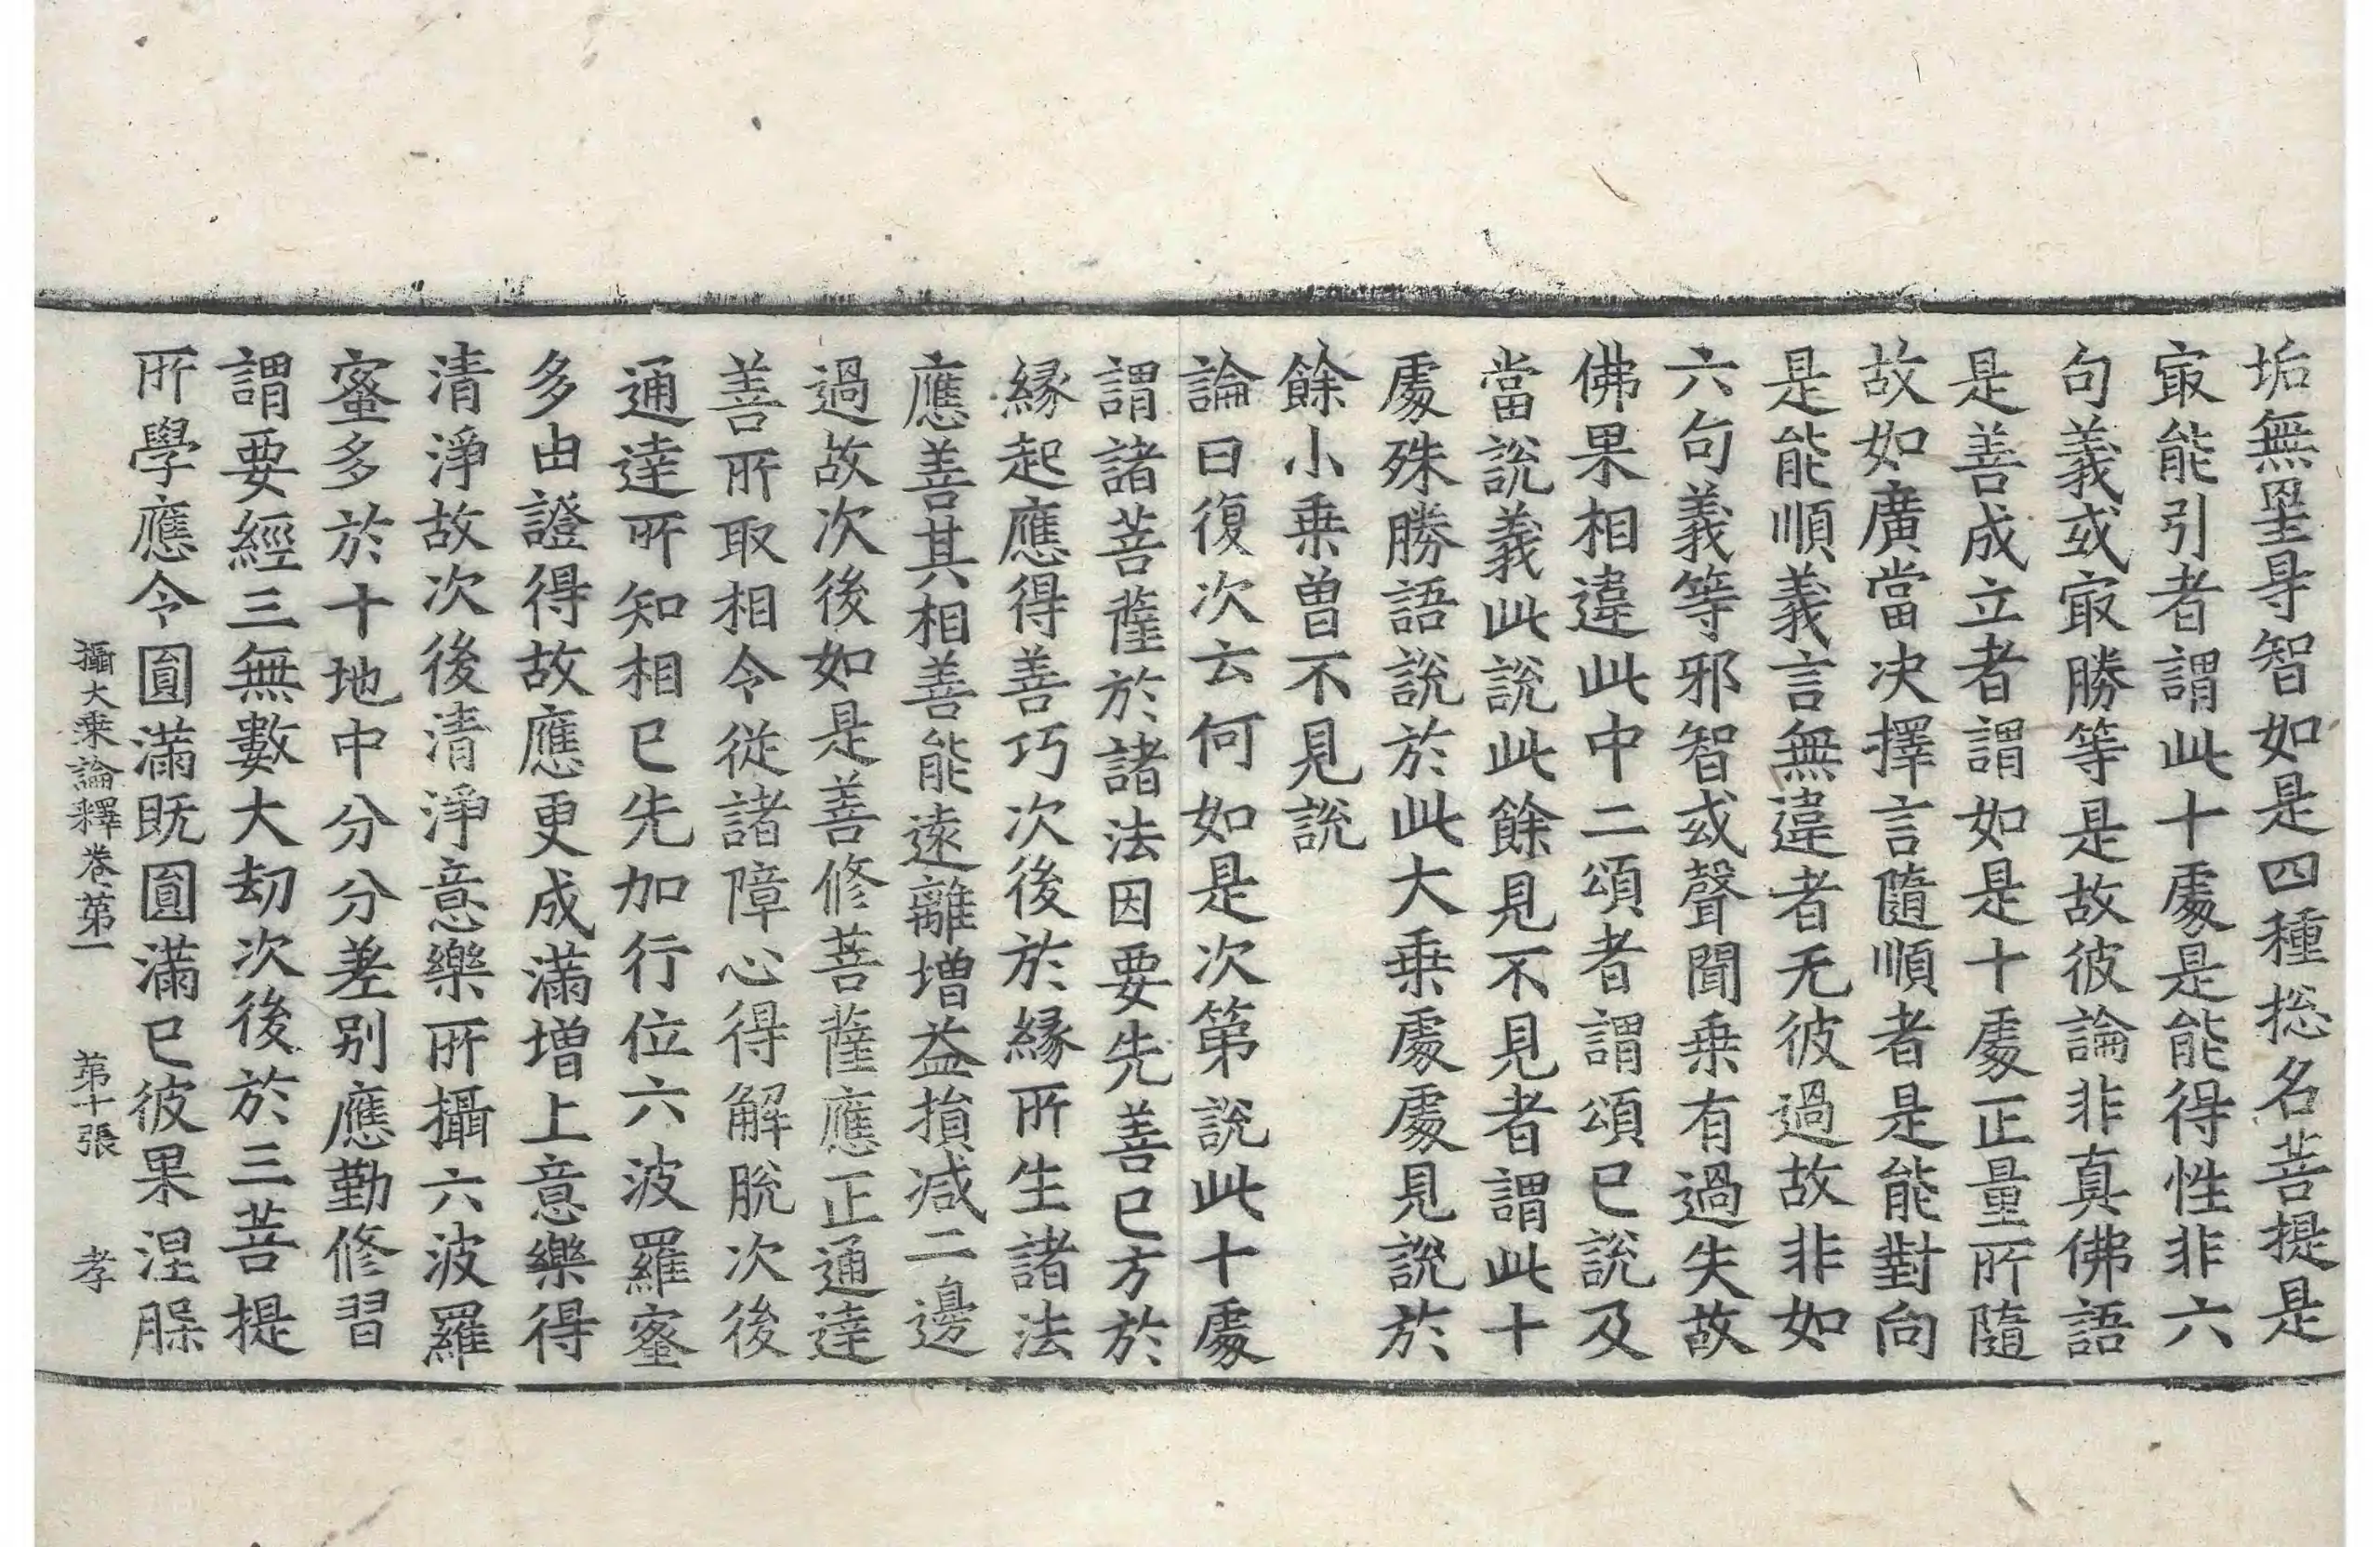 垢無罣㝵智如是四種捴名菩提是
㝡能引者謂此十處是能得性非六
句義或㝡勝等是故彼論非真佛語
是善成立者謂如是十處正量所隨
故如廣當决擇言隨順者是能對向
是能順義言無違者无彼過故非如
六句義等邪智或聲聞乗有過失故
佛果相違此中二頌者謂頌已說及
當說義此說此餘見不見者謂此十
處殊勝語說於此大乗處處見說於
餘小乗曾不見說
論曰復次云何如是次第說此十處
謂諸菩薩於諸法因要先善已方於
縁起應得善巧次後於縁所生諸法
應善其相善能遠離增益損减二邊
過故次後如是善修菩薩應正通達
善所取相令從諸障心得解脫次後
通達所知相已先加行位六波羅蜜
多由證得故應更成滿增上意樂得
清淨故次後清淨意樂所攝六波羅
蜜多於十地中分分差别應勤修習
謂要經三無數大劫次後於三菩提
所學應令圎滿既圎滿已彼果涅槃
攝大乗論釋卷第一　第十張　孝